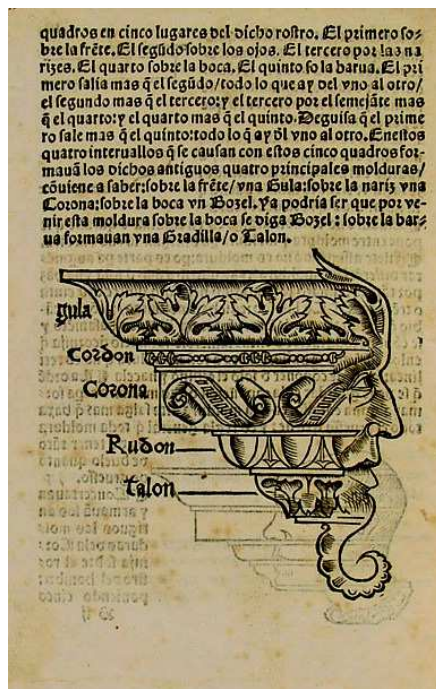 quadros en cinco lugares del dicho rostro. El primero so⸗
bre la frẽte. El segũdo sobre los ojos. El tercero por las na
rizes. El quarto sobre la boca. El quinto so la barua. El pri
mero salia mas q̃ el segũdo/todo lo que ay del vno al otro/
el segundo mas q̃ el tercero: y el tercero por el semejãte mas
q̃ el quarto: y el quarto mas q̃ el quinto. De guisa q̃ el prime
ro sale mas q̃ el quinto: todo lo q̃ ay dl̃ vno al otro. En estos
quatro interuallos q̃ se causan con estos cinco quadros for⸗
mauã los dichos antiguos quatro principales molduras/
cõuiene a saber: sobre la frẽte/vna Gula: sobre la nariz vna
Corona: sobre la boca vn Bozel. Ya podria ser que por ve⸗
nir esta moldura sobre la boca se diga Bozel: sobre la bar⸗
ua formauan vna Gradilla/o Talon.
gula
cordon
Corona
Rudon
talon